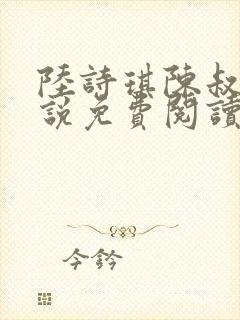 陸詩琪陳叔
說免費閱讀
今鈐